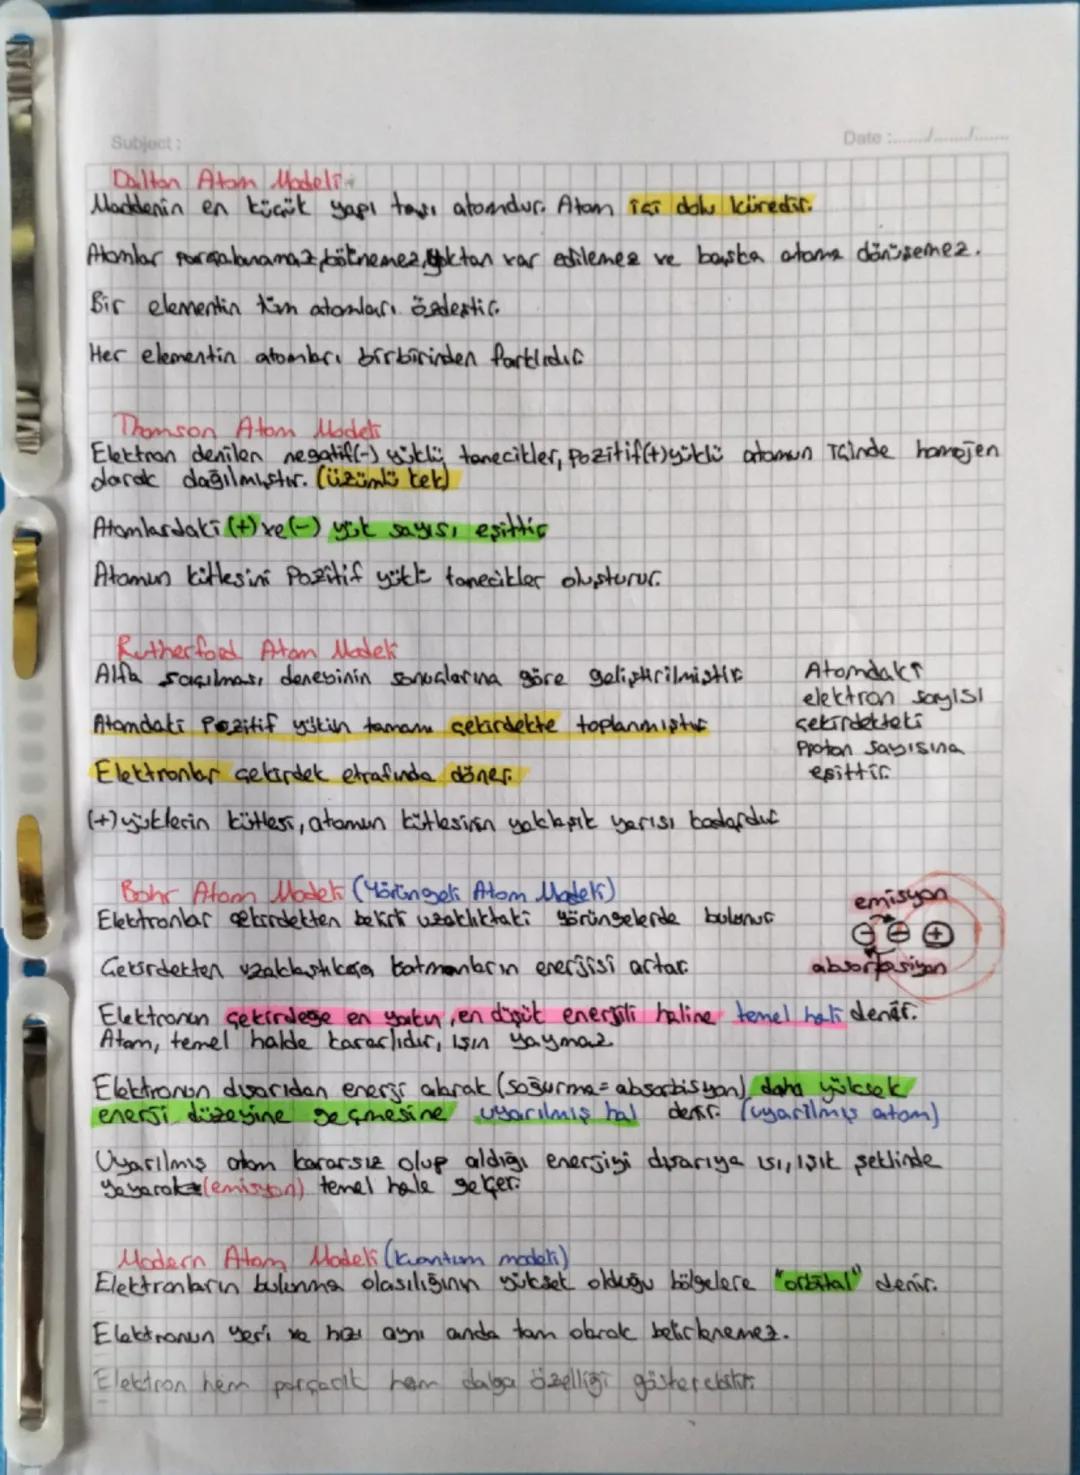 Subject :
Date :......./......./.......
Dalton Atom Modeli
Maddenin en küçük yapı taşı atomdur. Atom içi dolu küredir.
Atomlar parçalanamaz, bölünemez, yoktan var edilemez ve başka atoma dönüşemez.
Bir elementin tüm atomları özdeştir.
Her elementin atomları birbirinden farklıdır
Thomson Atom Modeli
Elektron denilen negatif(-) yüklü tanecikler, pozitif(+) yüklü atomun içinde homojen
olarak dağılmıştır. (üzümlü kek)
Atomlardaki (+) ve (-) yük sayısı eşittir
Atomun kütlesini Pozitif yüklü tanecikler oluşturur.
Rutherford Atom Modeli
Alfa saçılması deneyinin sonuçlarına göre geliştirilmiştir
Atomdaki pozitif yükün tamamı çekirdekte toplanmıştır
Elektronlar çekirdek etrafında döner.
(+) yüklerin kütlesi, atomun kütlesinin yaklaşık yarısı kadardır
Atomdaki
elektron sayısı
çekirdekteki
Proton sayısına
eşittir.
Bohr Atom Modeli (Yörüngeli Atom Modeli)
Elektronlar çekirdekten belirli uzaklıktaki yörüngelerde bulunur
Çekirdekten uzaklaştıkça katmanların enerjisi artar.
emisyon
- - +
absorbsiyon
Elektronun çekirdeğe en yakın, en düşük enerjili haline temel hali denir.
Atom, temel halde kararlıdır, ışın yaymaz.
Elektronun dışarıdan enerji alarak (soğurma = absorbisyon) daha yüksek
enerji düzeyine geçmesine uyarılmış hal denir. (uyarılmış atom)
Uyarılmış atom kararsız olup aldığı enerjiyi dışarıya ısı, ışık şeklinde
yayarak (emisyon) temel hale geçer.
Modern Atom Modeli (kuantum modeli)
Elektronların bulunma olasılığının yüksek olduğu bölgelere "orbital" denir.
Elektronun yeri ve hızı aynı anda tam olarak belirlenemez.
Elektron hem parçacık hem dalga özelliği gösterebilir.